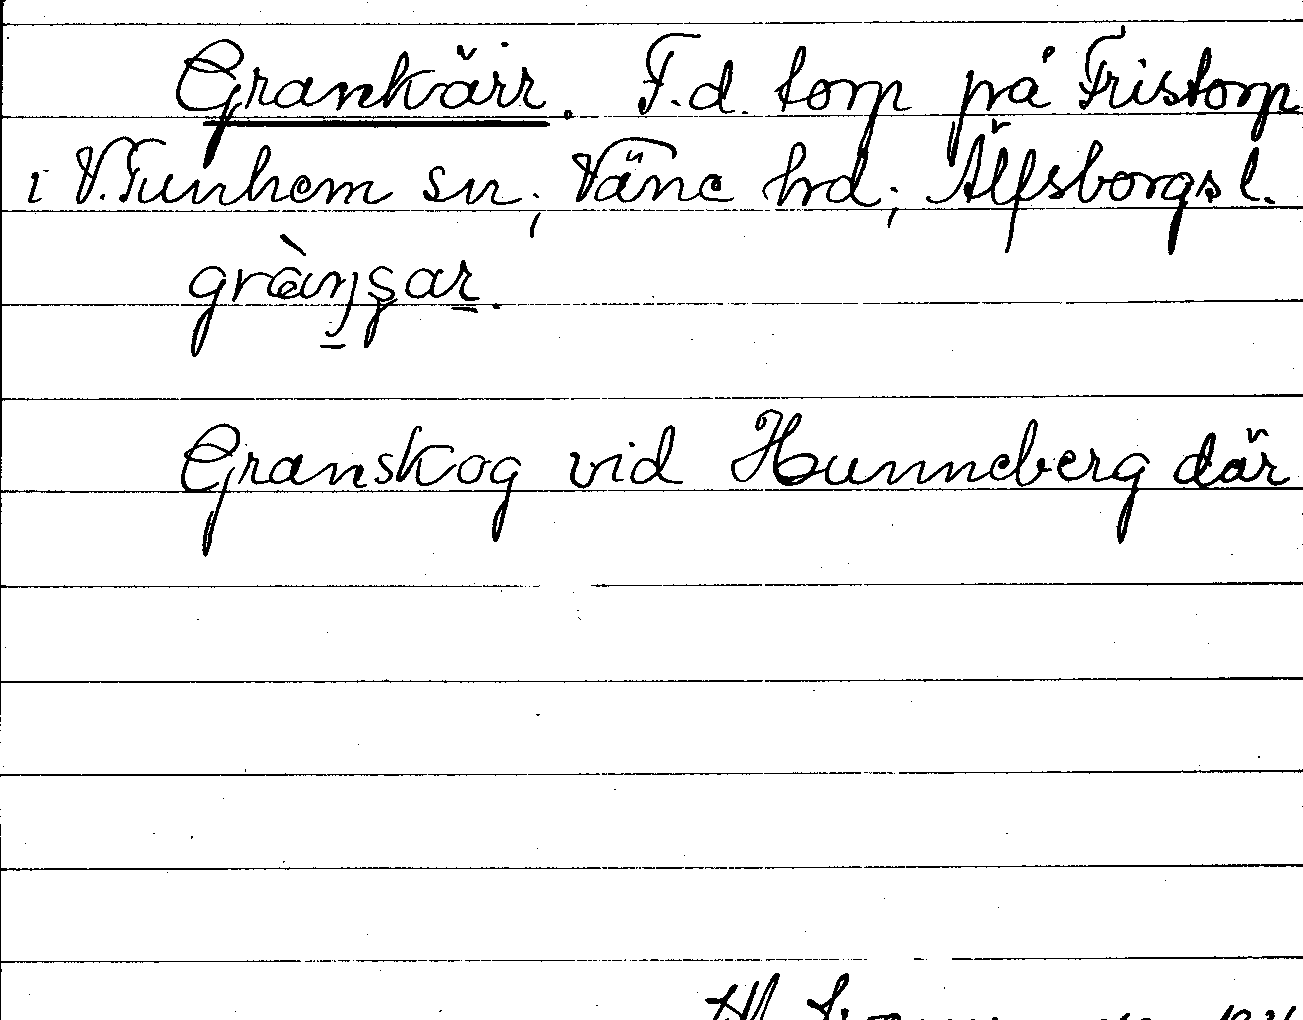 Grankärr. F.d. torp på Fristorp
i V. Tunhem sn; Väne hd; Älfsborgs l.
Granskog vid Hunneberg där